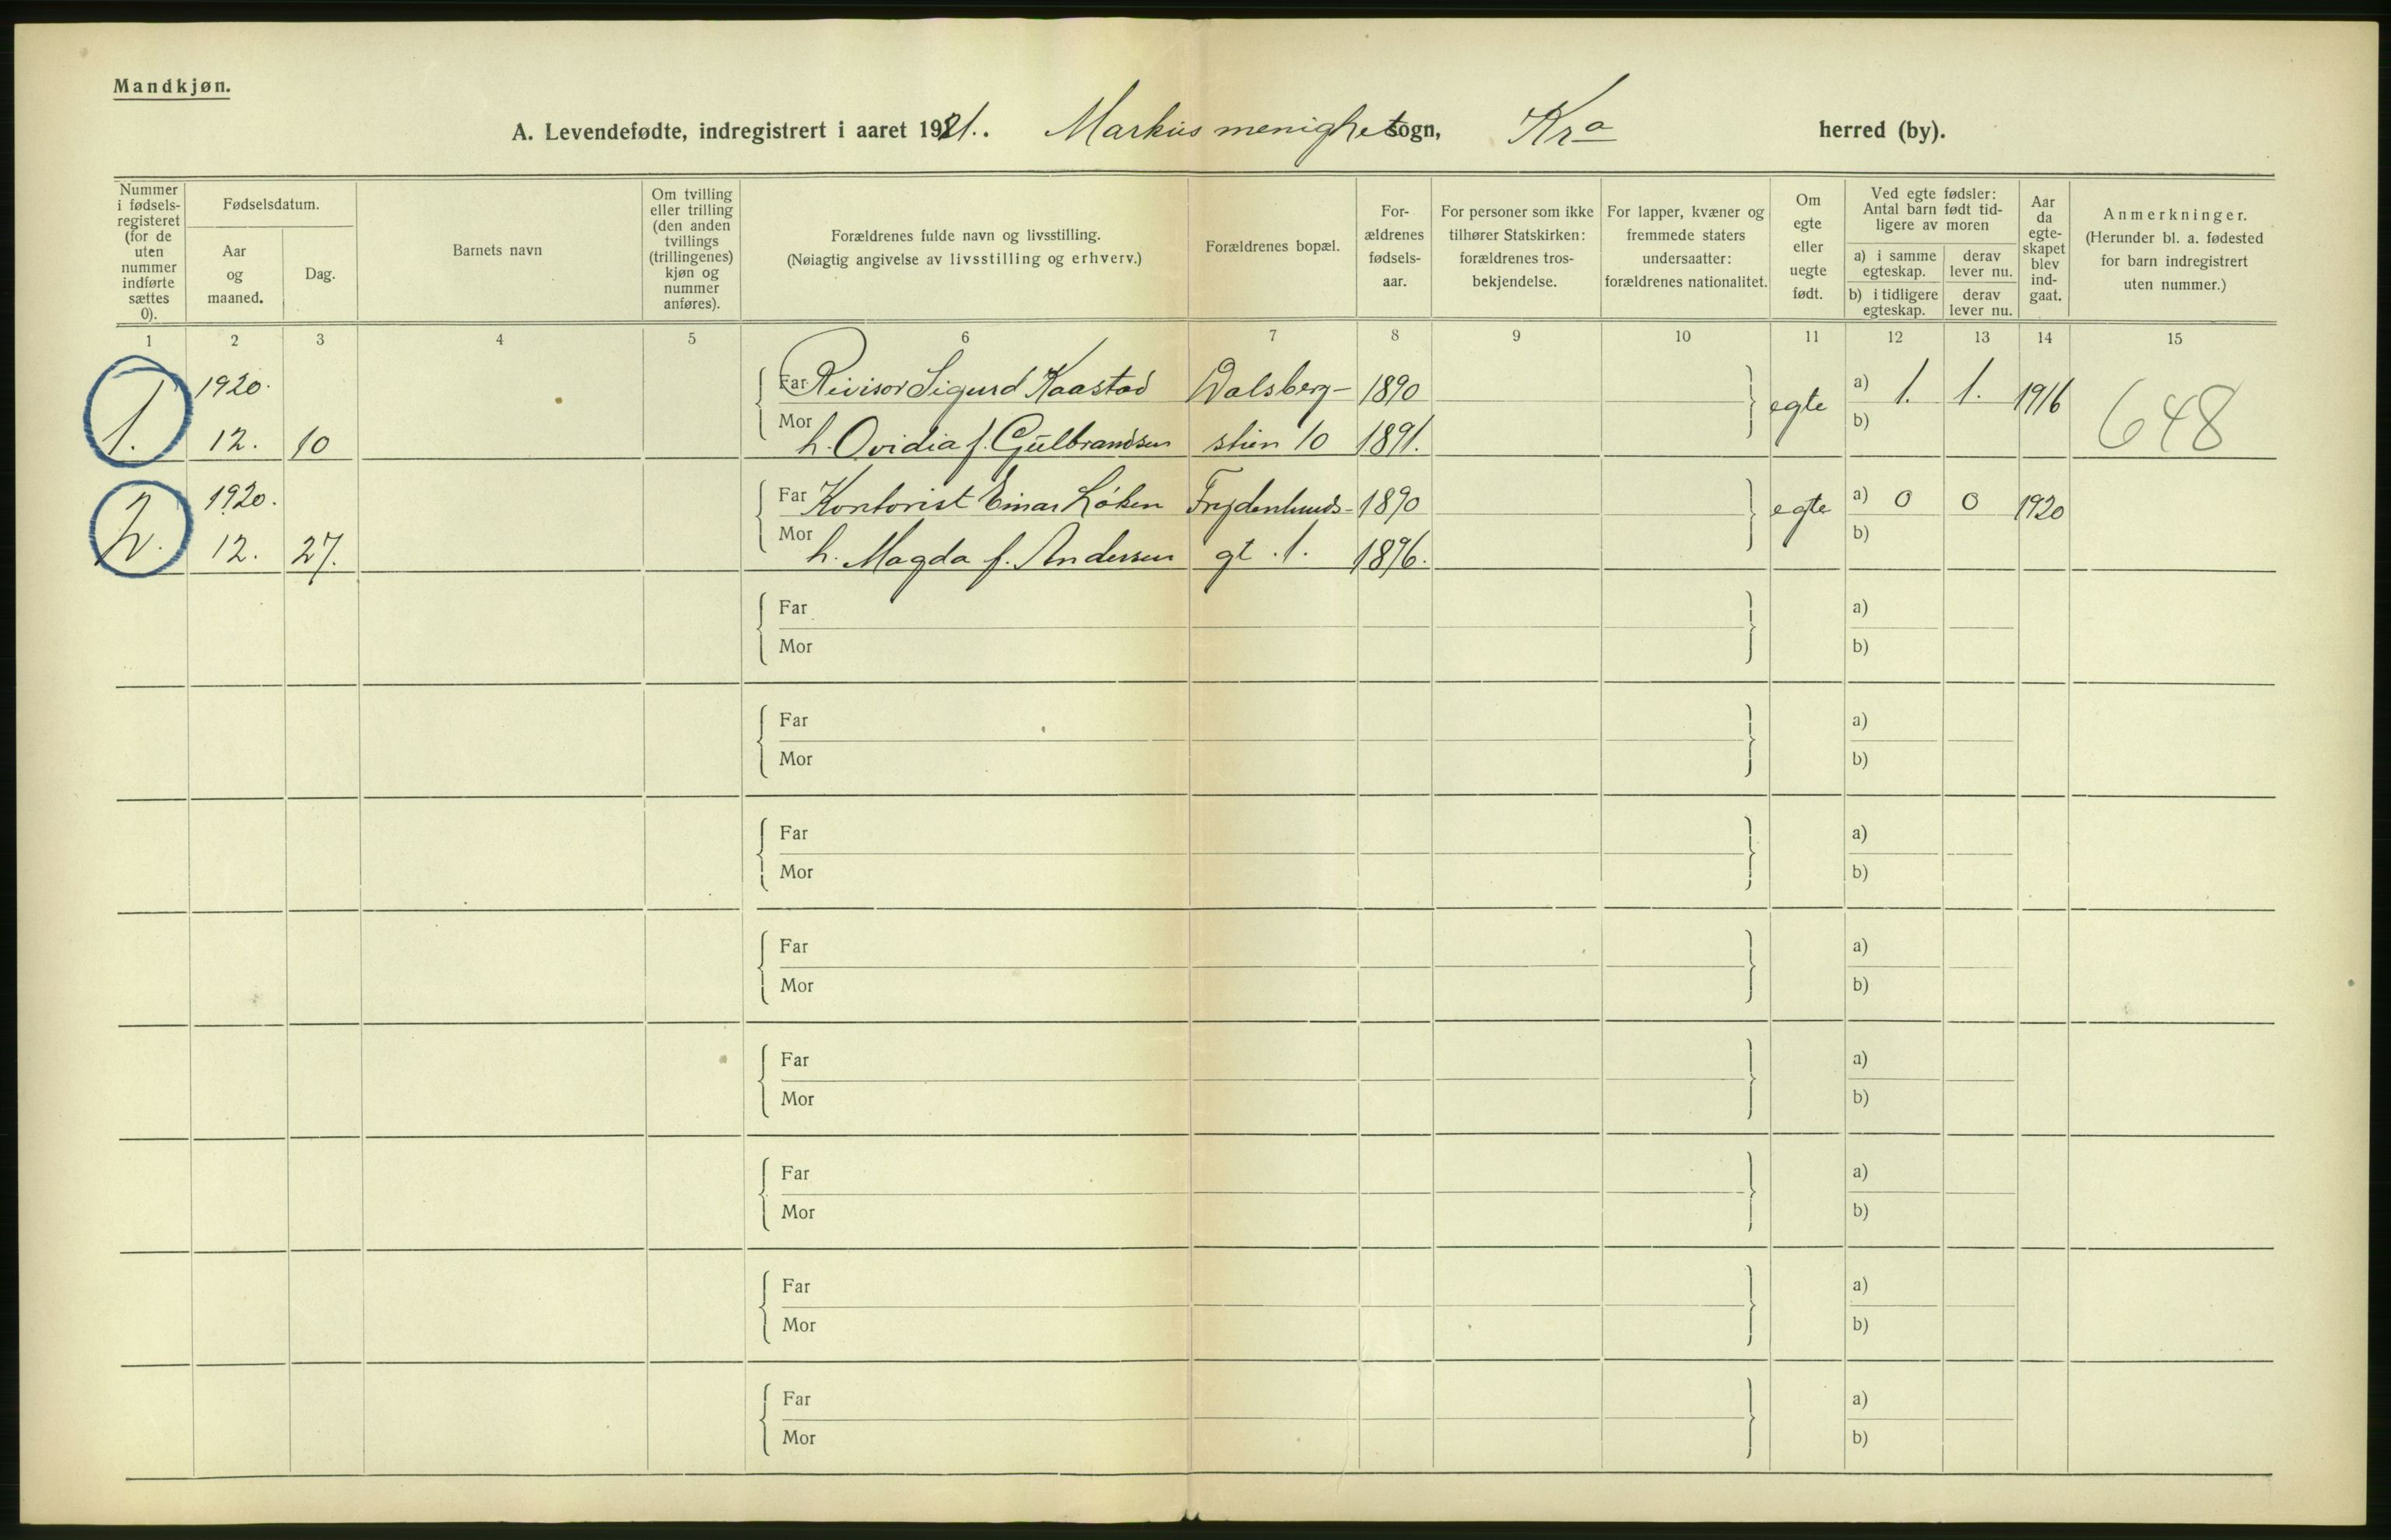 Mandkjøn.
A. Levendefødte, indregistrert i aaret 1921. Markus menighet sogn, Kra herred (by).
Nummer i fødsels-registeret (for de uten nummer indførte sættes 0).
Fødselsdatum.
Aar og maaned.
Dag.
Barnets navn
Om tvilling eller trilling (den anden tvillings (trillingenes) kjøn og nummer anføres).
Forældrenes fulde navn og livsstilling.
(Nøiagtig angivelse av livsstilling og erhverv.)
Forældrenes bopæl.
For-ældrenes fødsels-aar.
For personer som ikke tilhører Statskirken: forældrenes tros-bekjendelse.
For lapper, kvæner og fremmede staters undersaatter: forældrenes nationalitet.
Om egte eller uegte født.
Ved egte fødsler: Antal barn født tid-ligere av moren
a) i samme egteskap.
derav lever nu.
b) i tidligere egteskap.
derav lever nu.
Aar da egte-skapet blev ind-gaat.
Anmerkninger.
(Herunder bl. a. fødested for barn indregistrert uten nummer.)
1 2 3 4 5 6 7 8 9 10 11 12 13 14 15
1920. Far Revisor Sigurd Kaastad Dalsberg- 1890 a) 1. 1. 1916
1. 12. 10 Mor h. Ovidia f. Gulbrandsen stien 10 1891. egte b) 648
1920. Far Kontorist Einar Løken Frydenlunds- 1890 a) 0 0 1920
2. 12. 27. Mor h. Magda f. Andersen gt. 1. 1896. egte b)
Far a)
Mor b)
Far a)
Mor b)
Far a)
Mor b)
Far a)
Mor b)
Far a)
Mor b)
Far a)
Mor b)
Far a)
Mor b)
Far a)
Mor b)